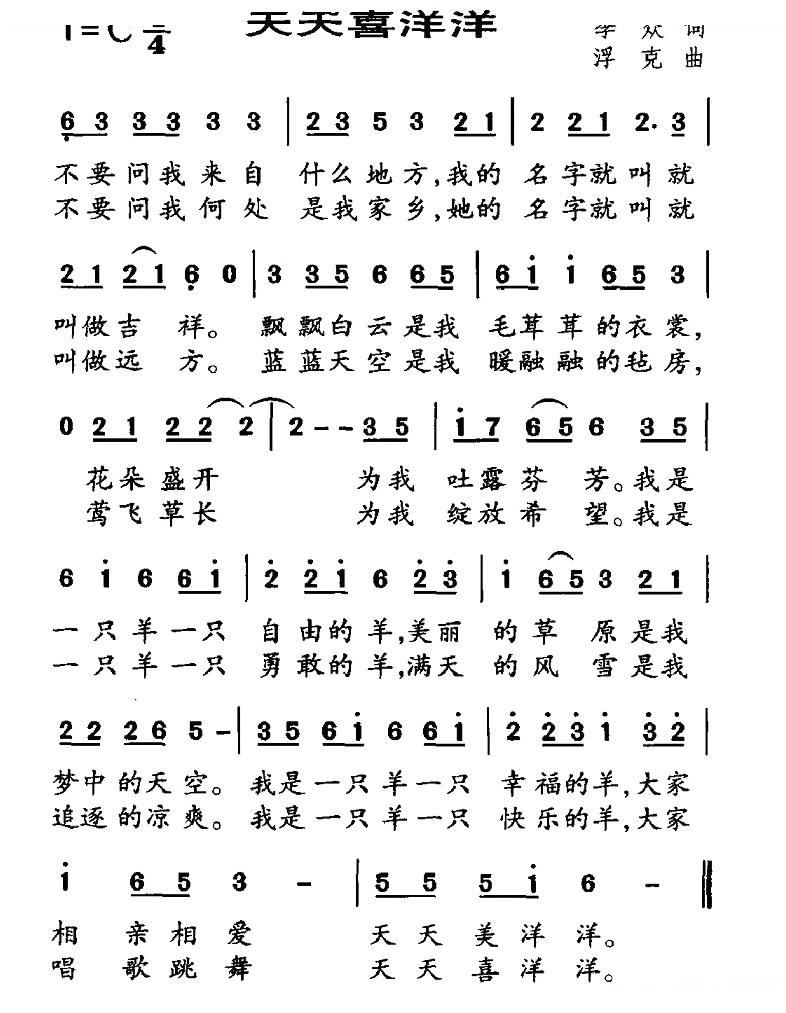 1=C 4 天天喜洋洋 李众词
浮克曲
6 3 3 3 3 3 | 2 3 5 3 2 1 | 2 2 1 2. 3 |
不要问我来自 什么地方,我的 名字就叫就
不要问我何处 是我家乡,她的 名字就叫就
2 1 2 1 6 0 | 3 3 5 6 6 5 | 6 1 1 6 5 3 |
叫做吉祥。 飘飘白云是我 毛茸茸的衣裳,
叫做远方。 蓝蓝天空是我 暖融融的毡房,
0 2 1 2 2 2 | 2 - - 3 5 | 1 7 6 5 6 3 5 |
花朵盛开 为我 吐露芬芳。我是
莺飞草长 为我 绽放希望。我是
6 1 6 6 1 | 2 2 1 6 2 3 | 1 6 5 3 2 1 |
一只羊一只 自由的羊,美丽 的草原是我
一只羊一只 勇敢的羊,满天 的风雪是我
2 2 2 6 5 - | 3 5 6 1 6 6 1 | 2 2 3 1 3 2 |
梦中的天空。 我是一只羊一只 幸福的羊,大家
追逐的凉爽。 我是一只羊一只 快乐的羊,大家
1 6 5 3 - | 5 5 5 1 6 - ‖
相亲相爱 天天美洋洋。
唱歌跳舞 天天喜洋洋。